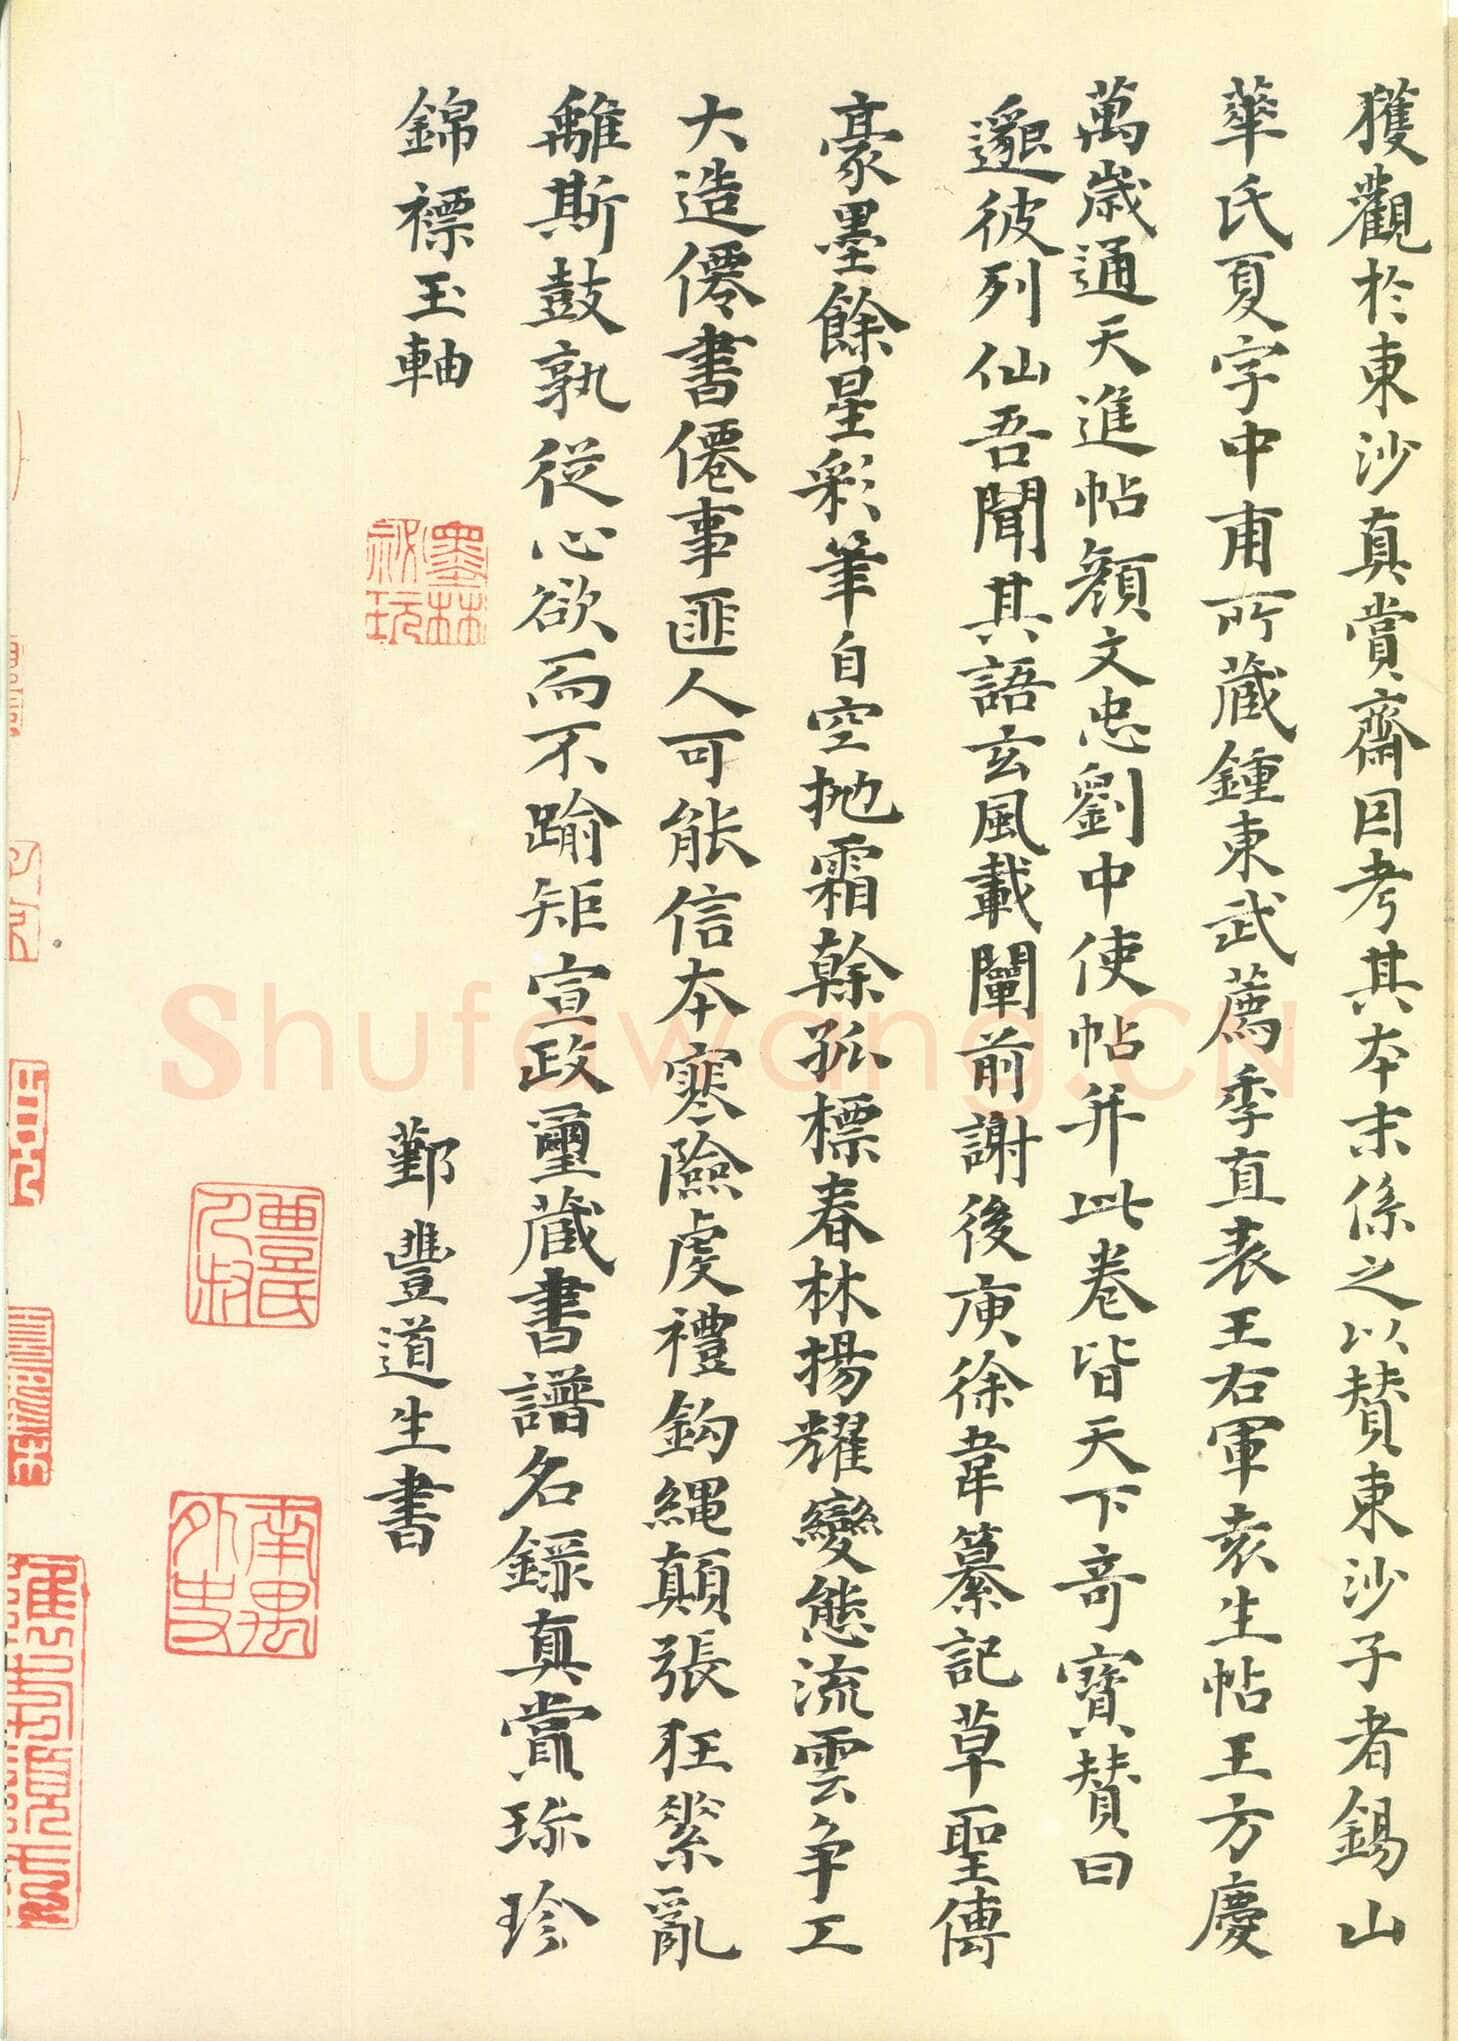 獲觀於東沙真賞齋因考其本末係之以賛東沙子者錫山
華氏夏字中甫所藏鍾東武薦季直表王右軍袁生帖王方慶
萬歲通天進帖顏文忠劉中使帖并此卷皆天下奇寶賛曰
邈彼列仙吾聞其語玄風載闡前謝後庾徐韋纂記草聖傳
豪墨餘星彩筆自空拋霜榦孤標春林揚耀變態流雲爭工
大造僊書僊事匪人可能信本寒險虔禮鈎繩顛張狂縈亂
離斯鼓孰從心欲而不踰矩宣政璽藏書譜名錄真賞珎珍
錦褾玉軸
鄞豐道生書
墨林祕玩
豐氏人叔
南禺外史
Shufawang.CN